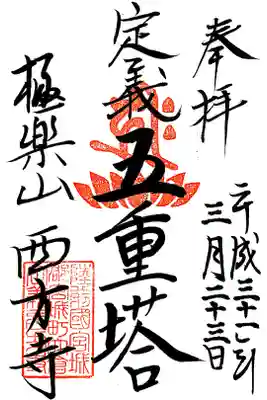 奉拝
平成三十一年
三月二十三日
定義
五重塔
極楽山
西方寺